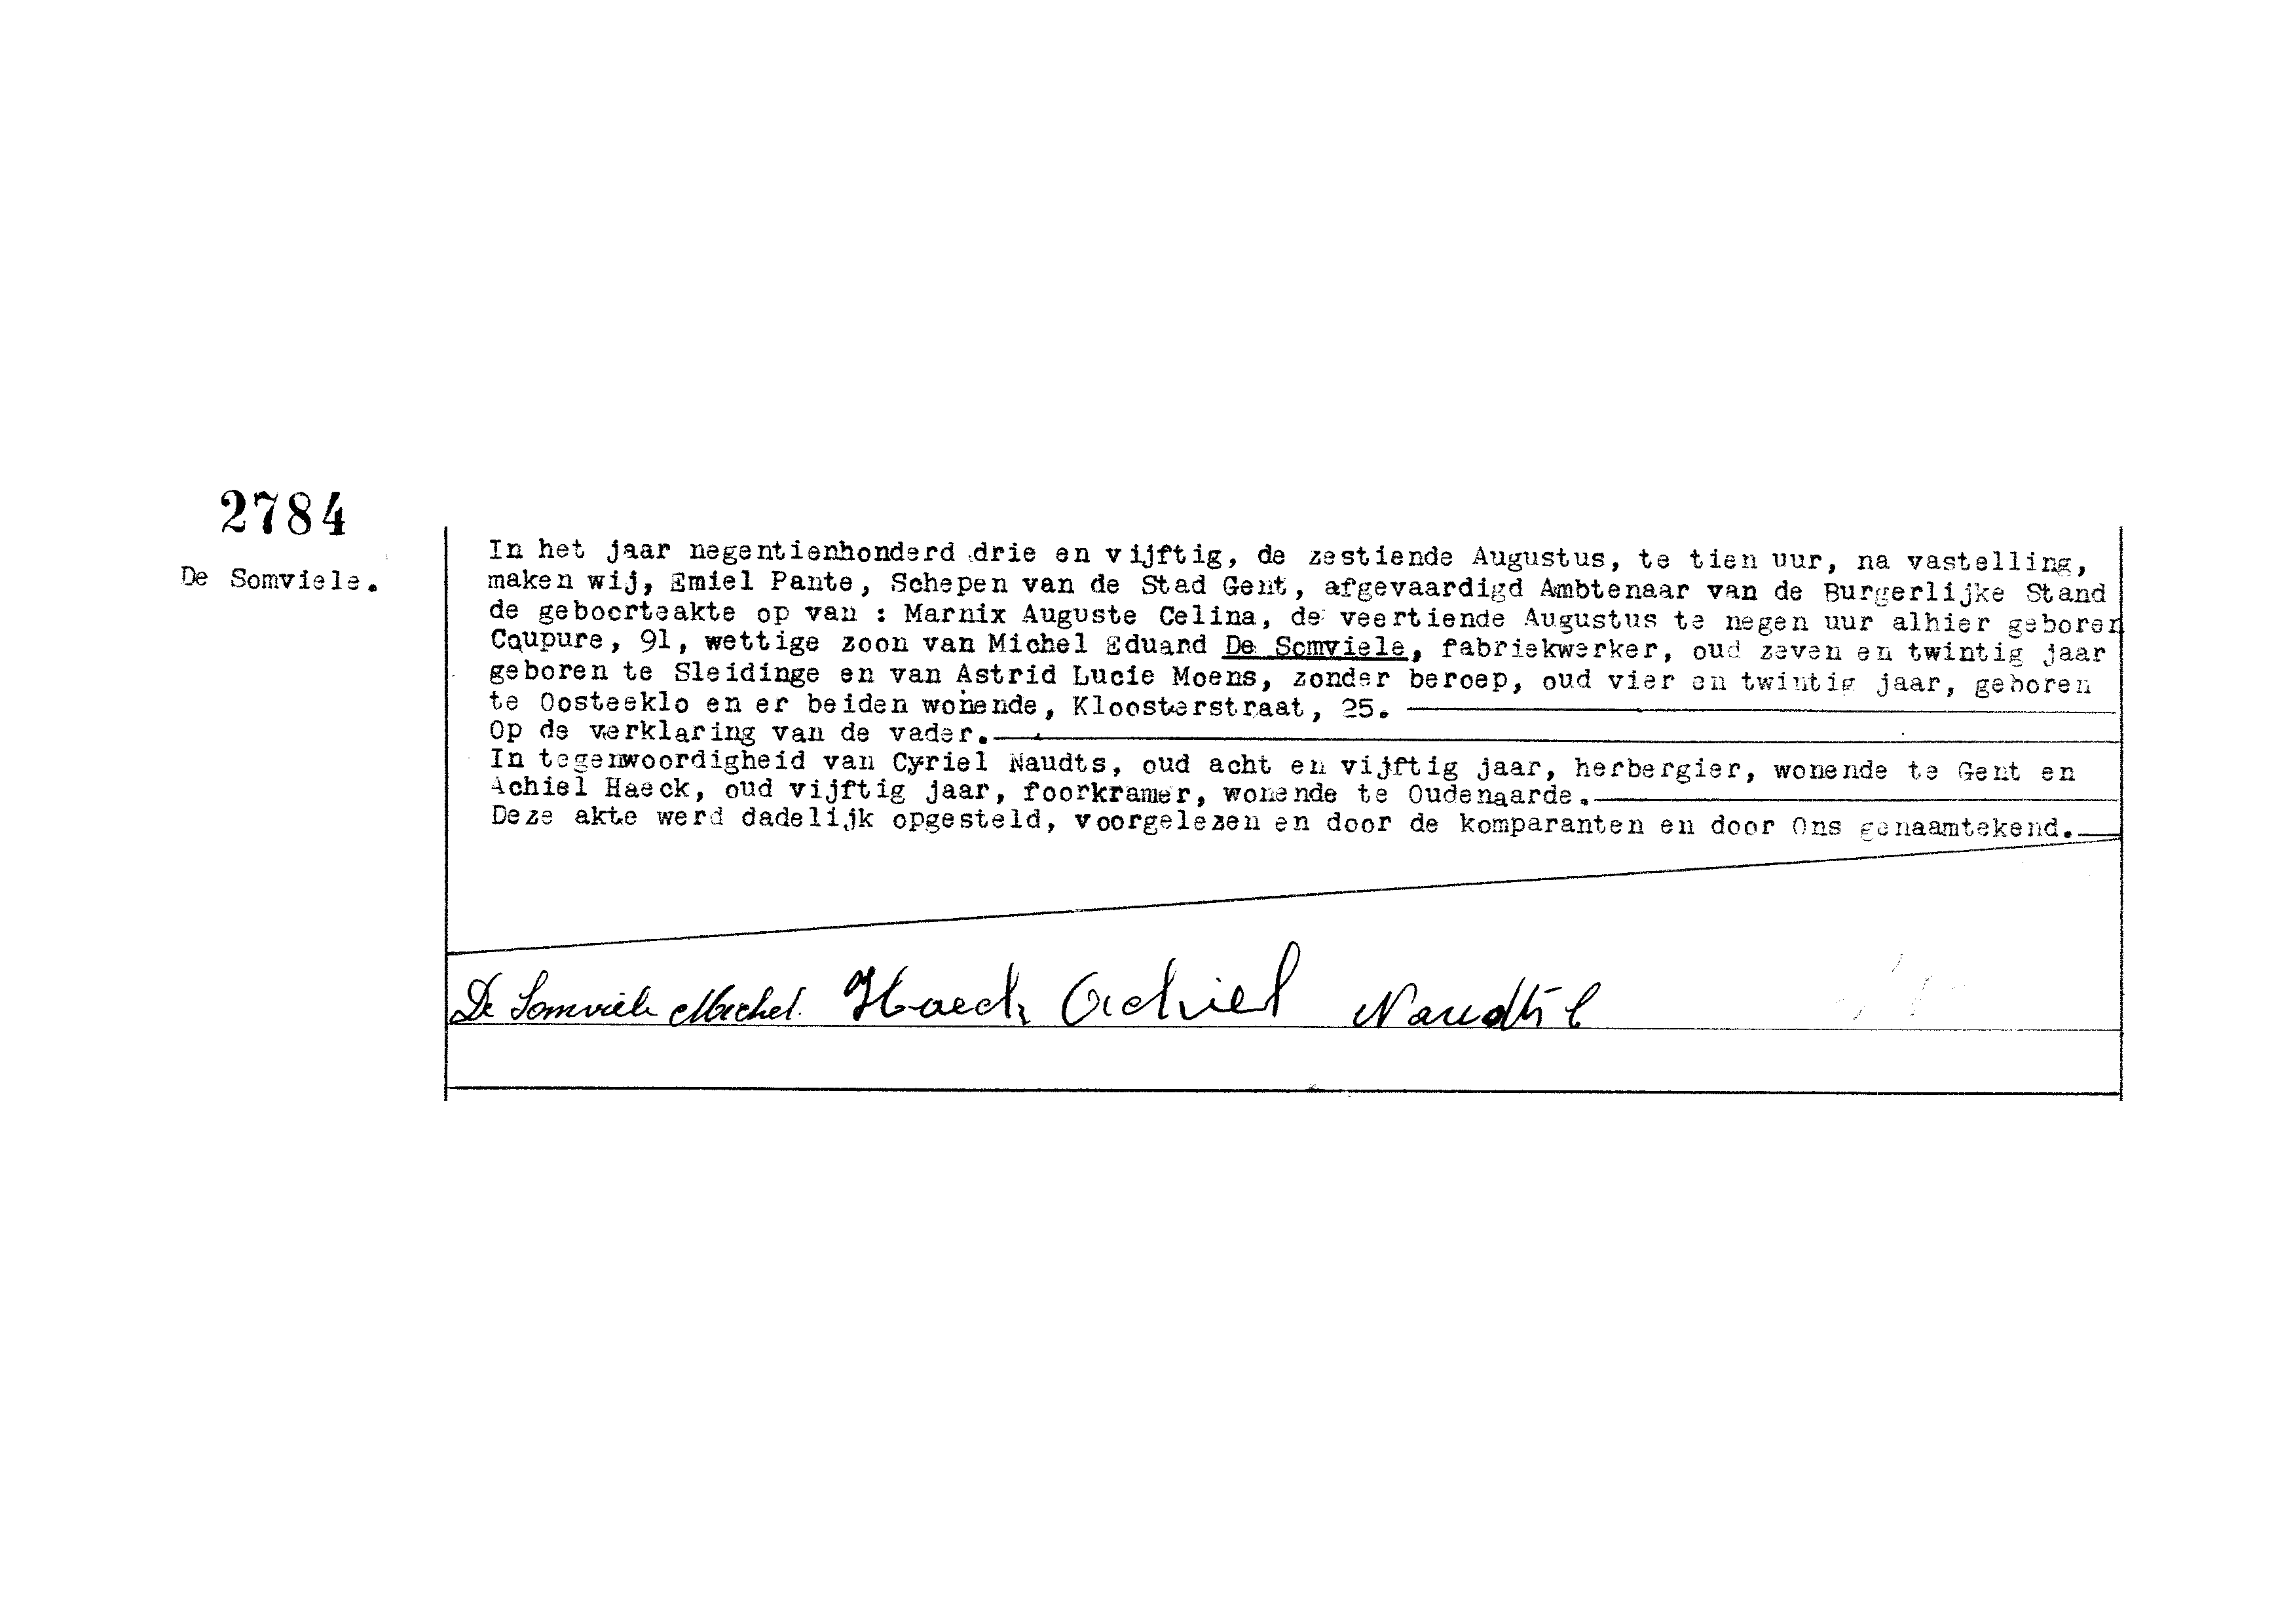 2784
De Somviele.
In het jaar negentienhonderd drie en vijftig, de zestiende Augustus, te tien uur, na vastelling,
maken wij, Emiel Pante, Schepen van de Stad Gent, afgevaardigd Ambtenaar van de Burgerlijke Stand
de geboorteakte op van : Marnix Auguste Celina, de veertiende Augustus te negen uur alhier geboren
Coupure, 91, wettige zoon van Michel Eduard De Somviele, fabriekwerker, oud zeven en twintig jaar
geboren te Sleidinge en van Astrid Lucie Moens, zonder beroep, oud vier en twintig jaar, geboren
te Oosteeklo en er beiden wonende, Kloosterstraat, 25.
Op de verklaring van de vader.
In tegenwoordigheid van Cyriel Naudts, oud acht en vijftig jaar, herbergier, wonende te Gent en
Achiel Haeck, oud vijftig jaar, foorkramer, wonende te Oudenaarde.
Deze akte werd dadelijk opgesteld, voorgelezen en door de komparanten en door Ons genaamtekend.
De Somviele Michel. Haeck Achiel Naudts C